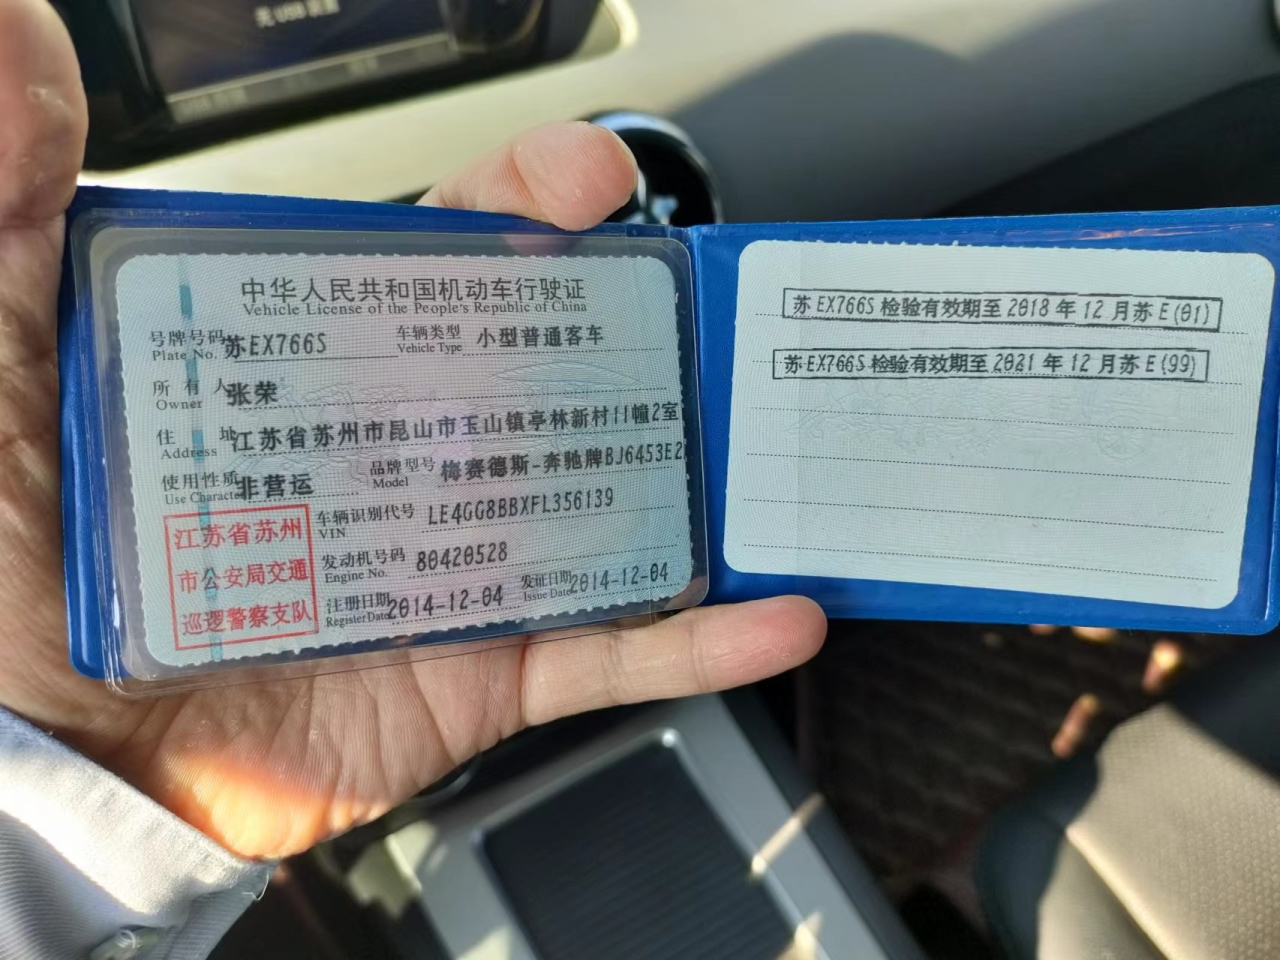 无 USB 设备
中华人民共和国机动车行驶证
Vehicle License of the People's Republic of China
号牌号码 苏EX766S 车辆类型 小型普通客车
Plate No. Vehicle Type
所有人 张荣
Owner
住址 江苏省苏州市昆山市玉山镇亭林新村11幢2室
Address
使用性质 非营运 品牌型号 梅赛德斯-奔驰牌BJ6453E2
Use Character Model
江苏省苏州
市公安局交通
巡逻警察支队
车辆识别代号 LE4GG8BBXFL356139
VIN
发动机号码 80420528
Engine No.
注册日期 2014-12-04 发证日期 2014-12-04
Register Date Issue Date
苏EX766S 检验有效期至 2018 年 12 月苏 E(01)
苏EX766S 检验有效期至 2021 年 12 月苏 E(99)